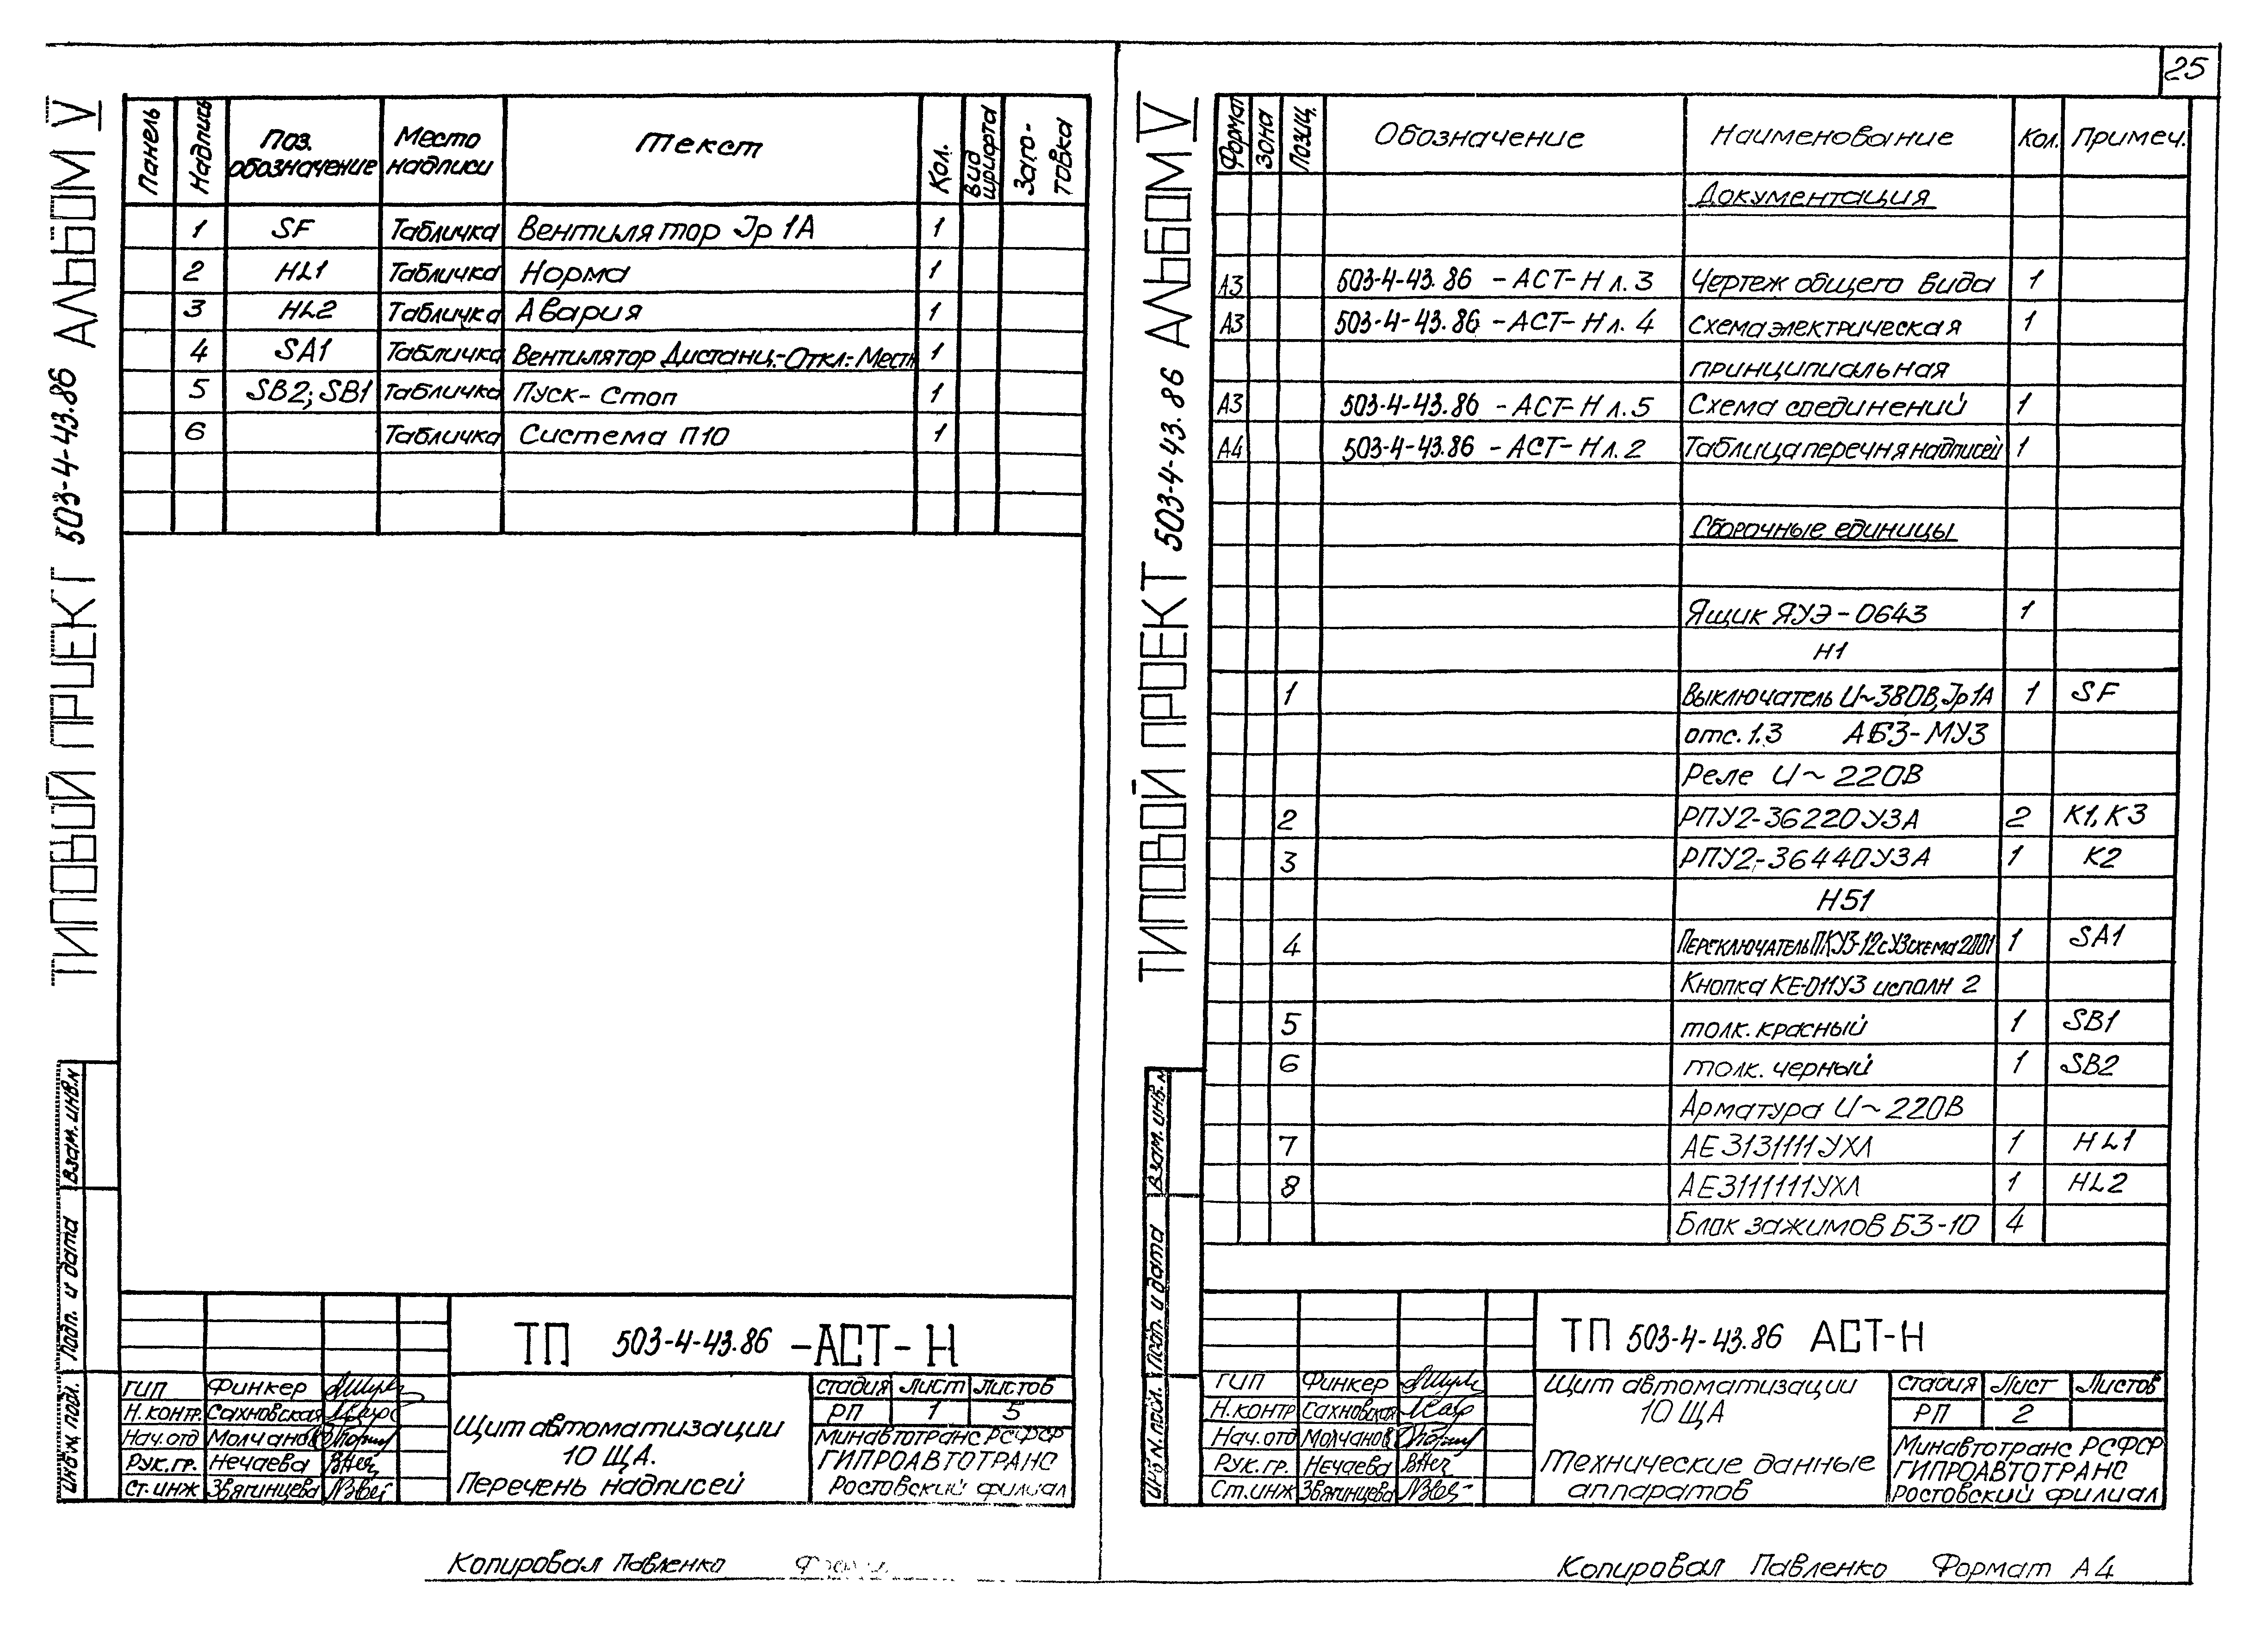 25
ТИПОВОЙ ПРОЕКТ 503-4-43.86 АЛЬБОМ V
Панель Надпись Поз. обозначение Место надписи Текст Кол. Вид шрифта Заготовка
1 SF Табличка Вентилятор Jр 1А 1
2 HL1 Табличка Норма 1
3 HL2 Табличка Авария 1
4 SA1 Табличка Вентилятор Дистанц.-Откл.-Местн 1
5 SB2; SB1 Табличка Пуск-Стоп 1
6 Табличка Система П10 1
Взам. инв.N
Подп. и дата
Инв.N подл.
ТП 503-4-43.86 -АСТ-Н
ГИП Финкер
Н.контр. Сахновская
Нач.отд Молчанов
Рук.гр. Нечаева
Ст.инж Звягинцева
Щит автоматизации
10 ЩА.
Перечень надписей
Стадия Лист Листов
РП 1 5
Минавтотранс РСФСР
ГИПРОАВТОТРАНС
Ростовский филиал
Копировал Павленко
ТИПОВОЙ ПРОЕКТ 503-4-43.86 АЛЬБОМ V
Формат Зона Позиц. Обозначение Наименование Кол. Примеч.
Документация
А3 503-4-43.86 -АСТ-Н л.3 Чертеж общего вида 1
А3 503-4-43.86 -АСТ-Н л.4 Схема электрическая 1
принципиальная
А3 503-4-43.86 -АСТ-Н л.5 Схема соединений 1
А4 503-4-43.86 -АСТ-Н л.2 Таблица перечня надписей 1
Сборочные единицы
Ящик ЯУЭ-0643 1
Н1
1 Выключатель U~380В, Jр1А 1 SF
отс.1.3 АБ3-МУ3
Реле U~220В
2 РПУ2-36220У3А 2 К1, К3
3 РПУ2-36440У3А 1 К2
Н51
4 Переключатель ПКУ3-12с У3 схема 2001 1 SA1
Кнопка КЕ-011У3 исполн 2
5 толк. красный 1 SB1
6 толк. черный 1 SB2
Арматура U~220В
7 АЕ3131111УХЛ 1 HL1
8 АЕ3111111УХЛ 1 HL2
Блок зажимов БЗ-10 4
Взам. инв.N
Подп. и дата
Инв.N подл.
ТП 503-4-43.86 АСТ-Н
ГИП Финкер
Н.контр Сахновская
Нач.отд Молчанов
Рук.гр. Нечаева
Ст.инж Звягинцева
Щит автоматизации
10 ЩА
Технические данные
аппаратов
Стадия Лист Листов
РП 2
Минавтотранс РСФСР
ГИПРОАВТОТРАНС
Ростовский филиал
Копировал Павленко Формат А4